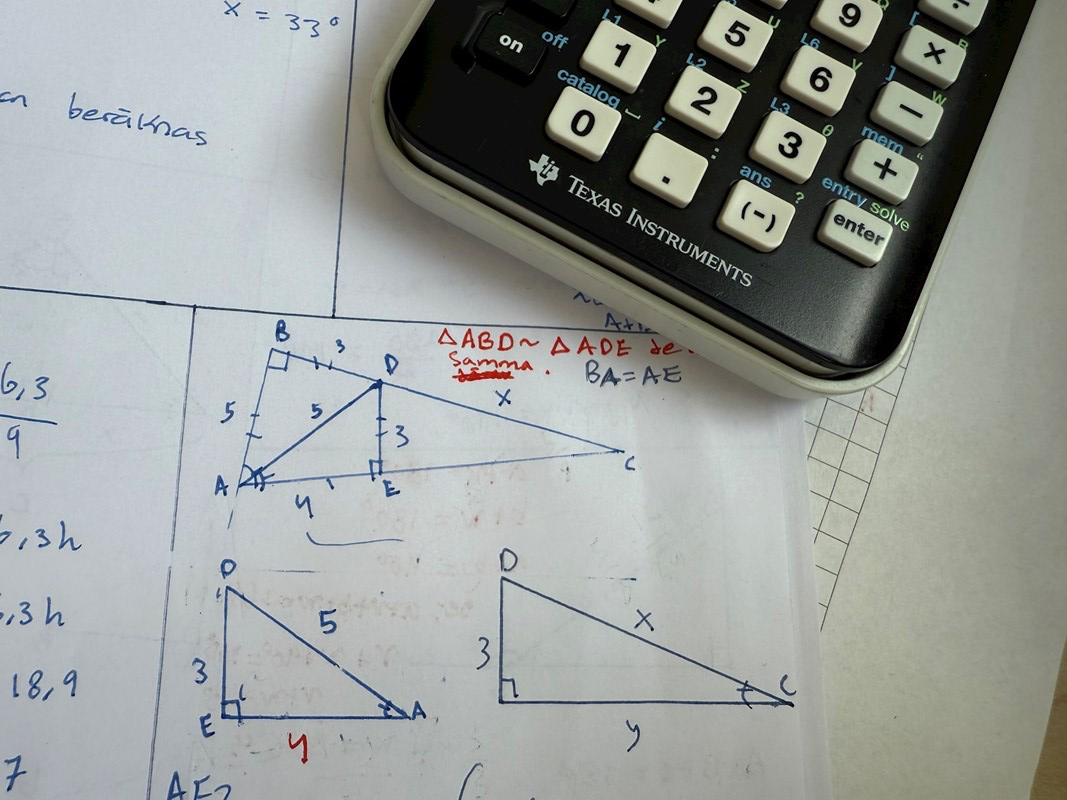 x = 33°
beräknas
on
off
catalog
L1
Y
1
0
i
L2
Z
5
2
.
:
TEXAS INSTRUMENTS
L6
V
9
6
L3
θ
3
ans
?
(-)
[
R
×
]
W
−
mem
"
+
entry solve
enter
÷
6,3
9
,3h
,3h
18,9
7
△ABD~ △ADE
Samma.
BA=AE
B
3
D
x
5
5
3
C
A
4
E
D
5
3
E
A
4
D
x
3
C
y